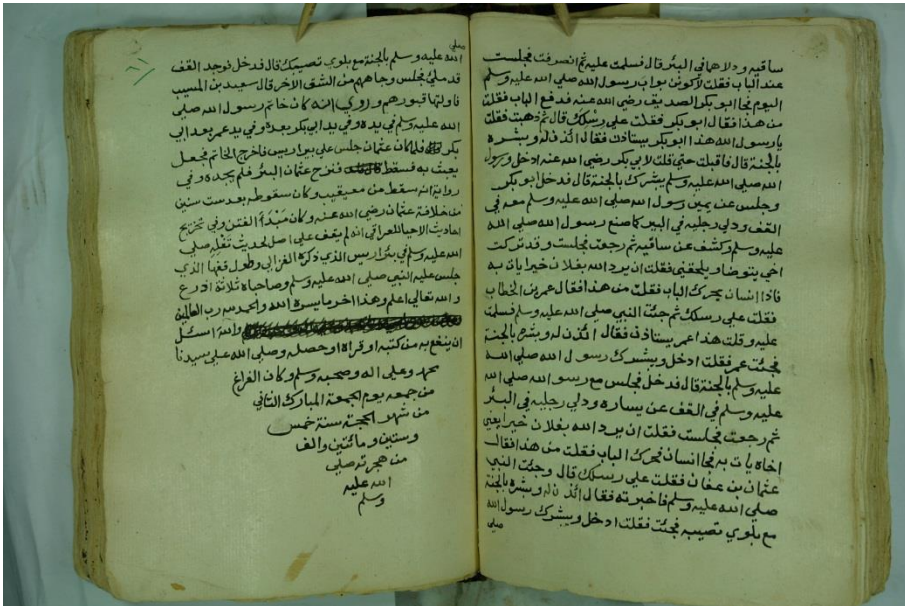 ساقيه ودلاهما في البئر قال فسلمت عليه ثم انصرفت فجلست
عند الباب فقلت لأكونن بواب رسول الله صلي الله عليه وسلم
اليوم فجا ابو بكر الصديق رضي الله عنه فدفع الباب فقلت
من هذا فقال ابو بكر فقلت علي رسلك قال ثم ذهبت فقلت
يا رسول الله هذا ابو بكر يستاذن فقال ائذن له وبشره
بالجنة قال فاقبلت حتي قلت لابي بكر رضي الله عنه ادخل ورسول
الله صلي الله عليه وسلم يبشرك بالجنة قال فدخل ابو بكر
وجلس عن يمين رسول الله صلي الله عليه وسلم معه في
القف ودلي رجليه في البير كما صنع رسول الله صلي الله
عليه وسلم وكشف عن ساقيه ثم رجعت فجلست وقد تركت
اخي يتوضا ويلحقني فقلت ان يرد الله بفلان خيرا يات به
فاذا انسان يحرك الباب فقلت من هذا فقال عمر بن الخطاب
فقلت علي رسلك ثم جئت النبي صلي الله عليه وسلم فسلمت
عليه وقلت هذا عمر يستاذن فقال ائذن له وبشره بالجنة
فجئت عمر فقلت ادخل ويبشرك رسول الله صلي الله
عليه وسلم بالجنة قال فدخل فجلس مع رسو الله صلي الله
عليه وسلم في القف عن يساره ودلي رجليه في البئر
ثم رجعت فجلست فقلت ان يرد الله بفلان خيرا يعني
اخاه يات به فجا انسان فحرك الباب فقلت من هذا فقال
عثمان بن عفان فقلت علي رسلك قال وجئت النبي
صلي الله عليه وسلم فاخبرته فقال ائذن له وبشره بالجنة
مع بلوي تصيبه فجئت فقلت ادخل ويبشرك رسول الله
صلي
صلي
الله عليه وسلم بالجنة مع بلوي تصيبك قال فدخل فوجد القف
قد ملئ فجلس وجاههم من الشق الاخر قال سعيد بن المسيب
فاولتها قبورهم وروي انه كان خاتم رسول الله صلي
الله عليه وسلم في يده وفي يد ابي بكر بعده وفي يد عمر بعد ابي
بكر فلما كان عثمان جلس علي بير اريس فاخرج الخاتم فجعل
يعبث به فسقط فنزح عثمان البئر فلم يجده وفي
رواية انه سقط من معيقيب وكان سقوطه بعد ست سنين
من خلافة عثمان رضي الله عنه وكان مبدأ الفتن وفي تخريج
احاديث الاحيا للعراقي انه لم يقف علي اصل لحديث تفله صلي
الله عليه وسلم في بئر اريس الذي ذكره الغزالي وطول قفها الذي
جلس عليه النبي صلي الله عليه وسلم وصاحباه ثلاثة اذرع
والله تعالي اعلم وهذا اخر ما يسره الله والحمد لله رب العالمين
والله اسئل
ان ينفع به من كتبه او قراه او حصله وصلي الله علي سيدنا
محمد وعلي اله وصحبه وسلم وكان الفراغ
من جمعه يوم الجمعة المبارك الثاني
من شهر الحجة سنة خمس
وستين ومائتين والف
من هجرته صلي
الله عليه
وسلم